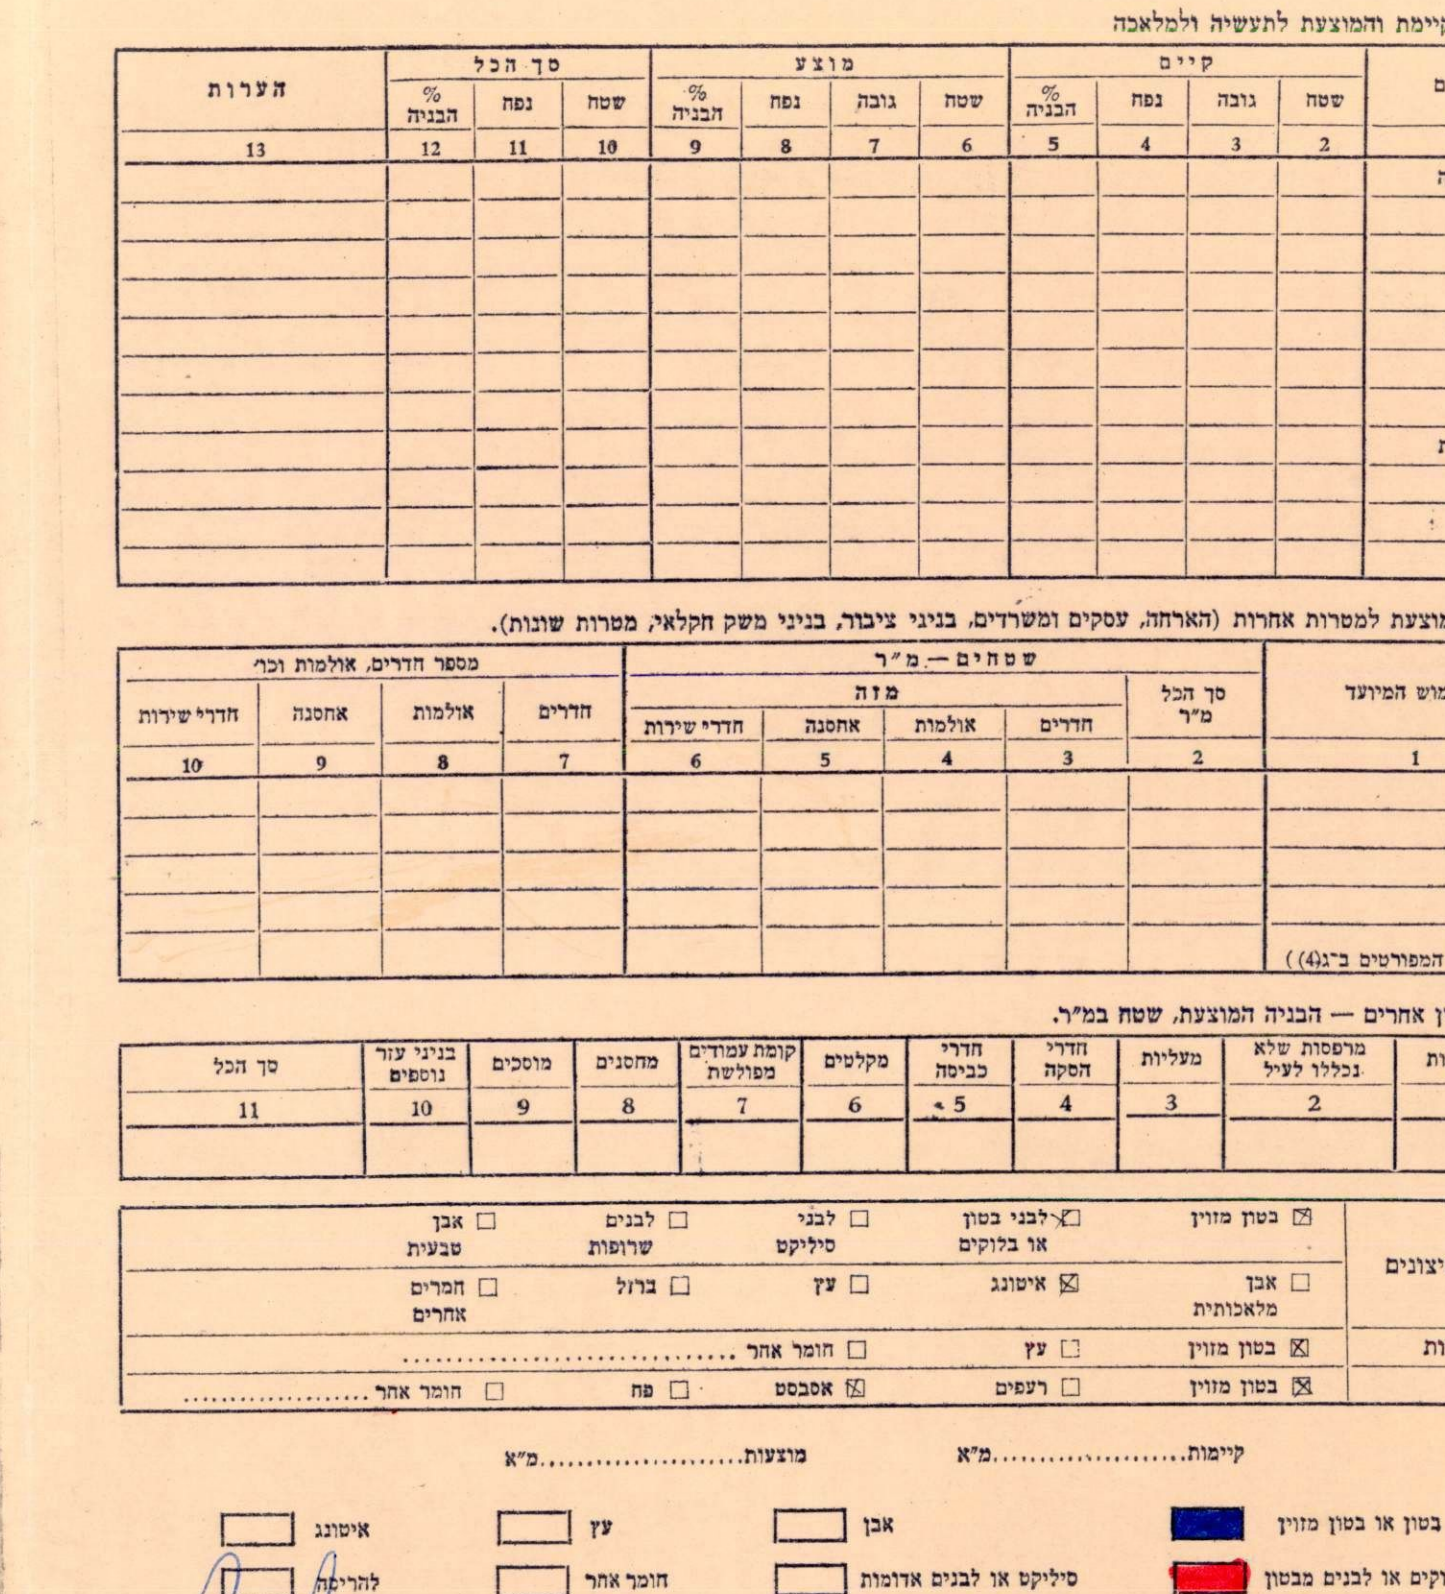 קיימת והמוצעת לתעשיה ולמלאכה
קיים מוצע סך הכל הערות
שטח גובה נפח % הבניה שטח גובה נפח % הבניה שטח נפח % הבניה
2 3 4 5 6 7 8 9 10 11 12 13
מוצעת למטרות אחרות (הארחה, עסקים ומשרדים, בניני ציבור, בניני משק חקלאי, מטרות שונות).
שטחים – מ״ר מספר חדרים, אולמות וכו׳
המיועד סך הכל מ״ר מזה חדרים אולמות אחסנה חדרי שירות
חדרים אולמות אחסנה חדרי שירות
1 2 3 4 5 6 7 8 9 10
המפורטים ב־ג(4))
אחרים — הבניה המוצעת, שטח במ״ר.
מרפסות שלא מעליות חדרי חדרי מקלטים קומת עמודים מחסנים מוסכים בניני עזר סך הכל
נכללו לעיל הסקה כביסה מפולשת נוספים
2 3 4 5 6 7 8 9 10 11
☒ בטון מזוין ☒ לבני בטון ☐ לבני ☐ לבנים ☐ אבן
או בלוקים סיליקט שרופות טבעית
☐ אבן ☒ איטונג ☐ עץ ☐ ברזל ☐ חמרים
מלאכותית אחרים
☒ בטון מזוין ☐ עץ ☐ חומר אחר ..............................
☒ בטון מזוין ☐ רעפים ☒ אסבסט ☐ פח ☐ חומר אחר .................
קיימות....................מ״א מוצעות.....................מ״א
בטון או בטון מזוין אבן עץ איטונג
או לבנים מבטון סיליקט או לבנים אדומות חומר אחר להריסה